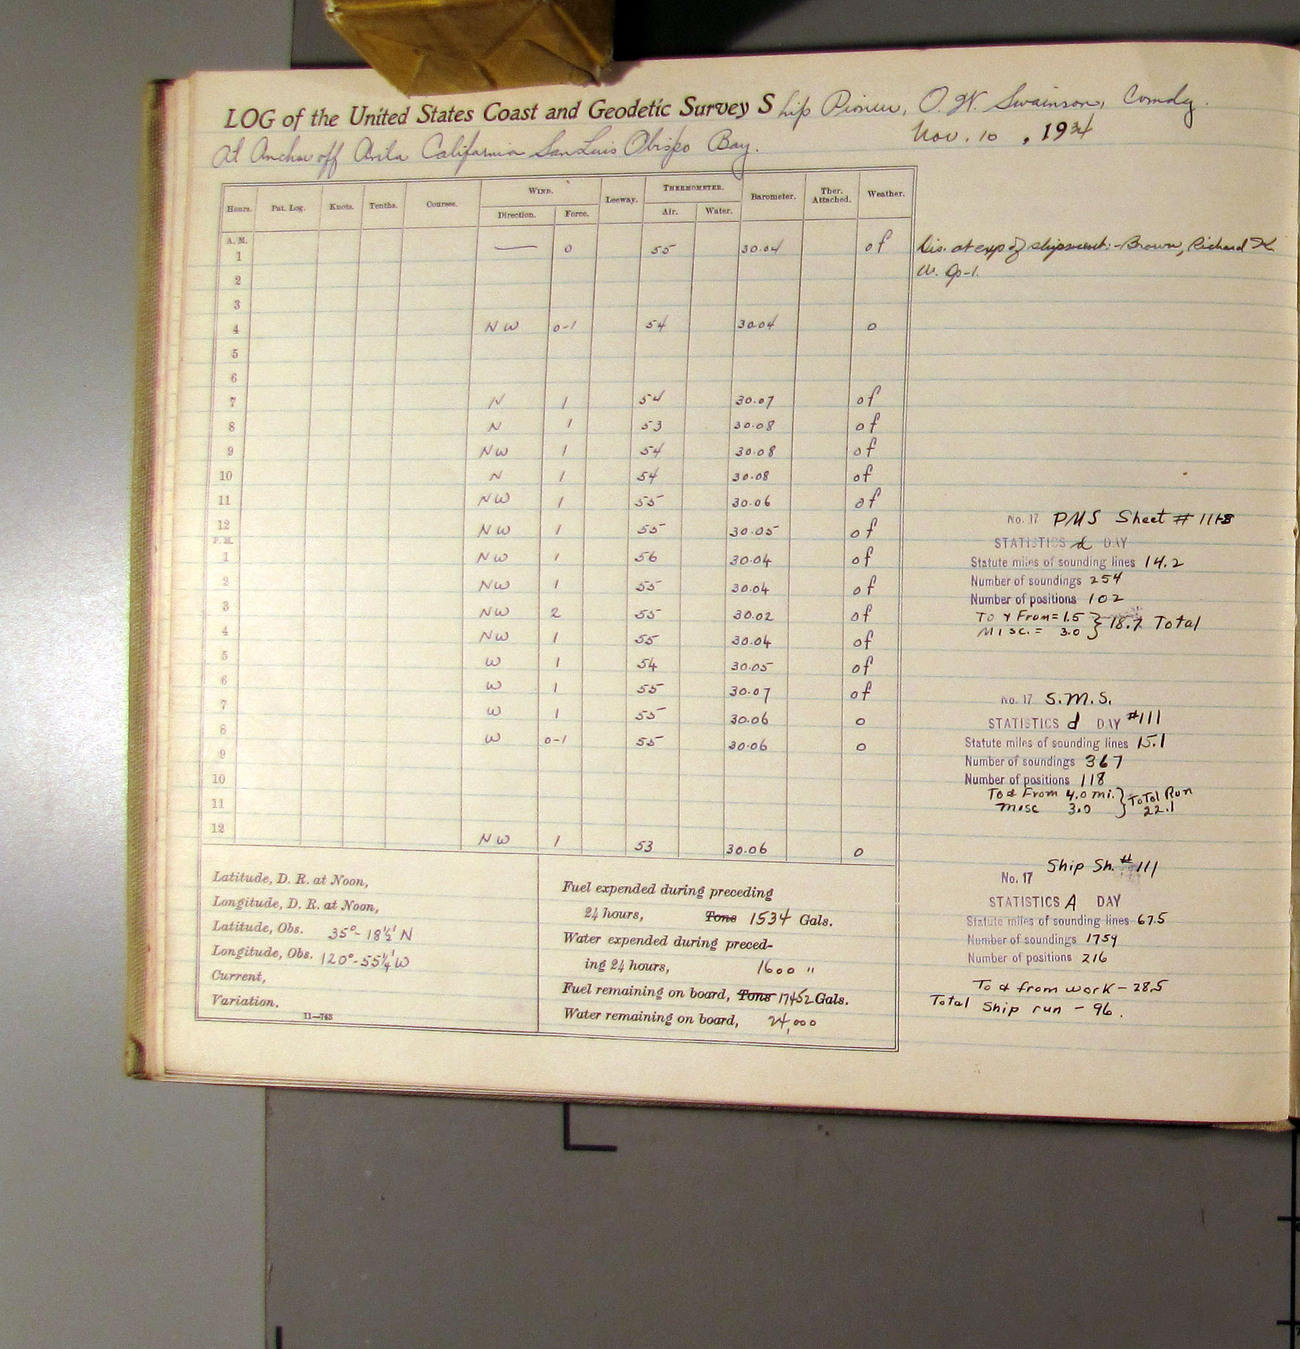 LOG of the United States Coast and Geodetic Survey Ship Pioneer, O. W. Swainson, Comdg.
At Anchor off Avila California San Luis Obispo Bay. Nov. 10, 1934
Hours. Pat. Log. Knots. Tenths. Courses. WIND. Direction. Force. Leeway. THERMOMETER. Air. Water. Barometer. Ther. Attached. Weather.
A. M.
1 — 0 55 30.04 of Dis. at exp of : - Brown, Richard K
2
3
4 NW 0-1 54 30.04 o
5
6
7 N 1 54 30.07 of
8 N 1 53 30.08 of
9 NW 1 54 30.08 of
10 N 1 54 30.08 of
11 NW 1 55 30.06 of
12 NW 1 55 30.05 of
P. M.
1 NW 1 56 30.04 of
2 NW 1 55 30.04 of
3 NW 2 55 30.02 of
4 NW 1 55 30.04 of
5 W 1 54 30.05 of
6 W 1 55 30.07 of
7 W 1 55 30.06 o
8 W 0-1 55 30.06 o
9
10
11
12 NW 1 53 30.06 o
No. 17 PMS Sheet #
STATISTICS d DAY
Statute miles of sounding lines 14.2
Number of soundings 254
Number of positions 102
To & From = 1.5 } 18.7 Total
Misc. = 3.0
No. 17 S.M.S.
STATISTICS d DAY #111
Statute miles of sounding lines 15.1
Number of soundings 367
Number of positions 118
To & From 4.0 mi. } Total Run
misc 3.0 22.1
Ship Sh. # 111
No. 17
STATISTICS A DAY
Statute miles of sounding lines 67.5
Number of soundings 1754
Number of positions 216
To & from work - 28.5
Total Ship run - 96.
Latitude, D. R. at Noon,
Longitude, D. R. at Noon,
Latitude, Obs. 35°-18½' N
Longitude, Obs. 120°-55¼' W
Current,
Variation.
11—743
Fuel expended during preceding
24 hours, Tons 1534 Gals.
Water expended during preced-
ing 24 hours, 1600 "
Fuel remaining on board, Tons 17452 Gals.
Water remaining on board, 24,000